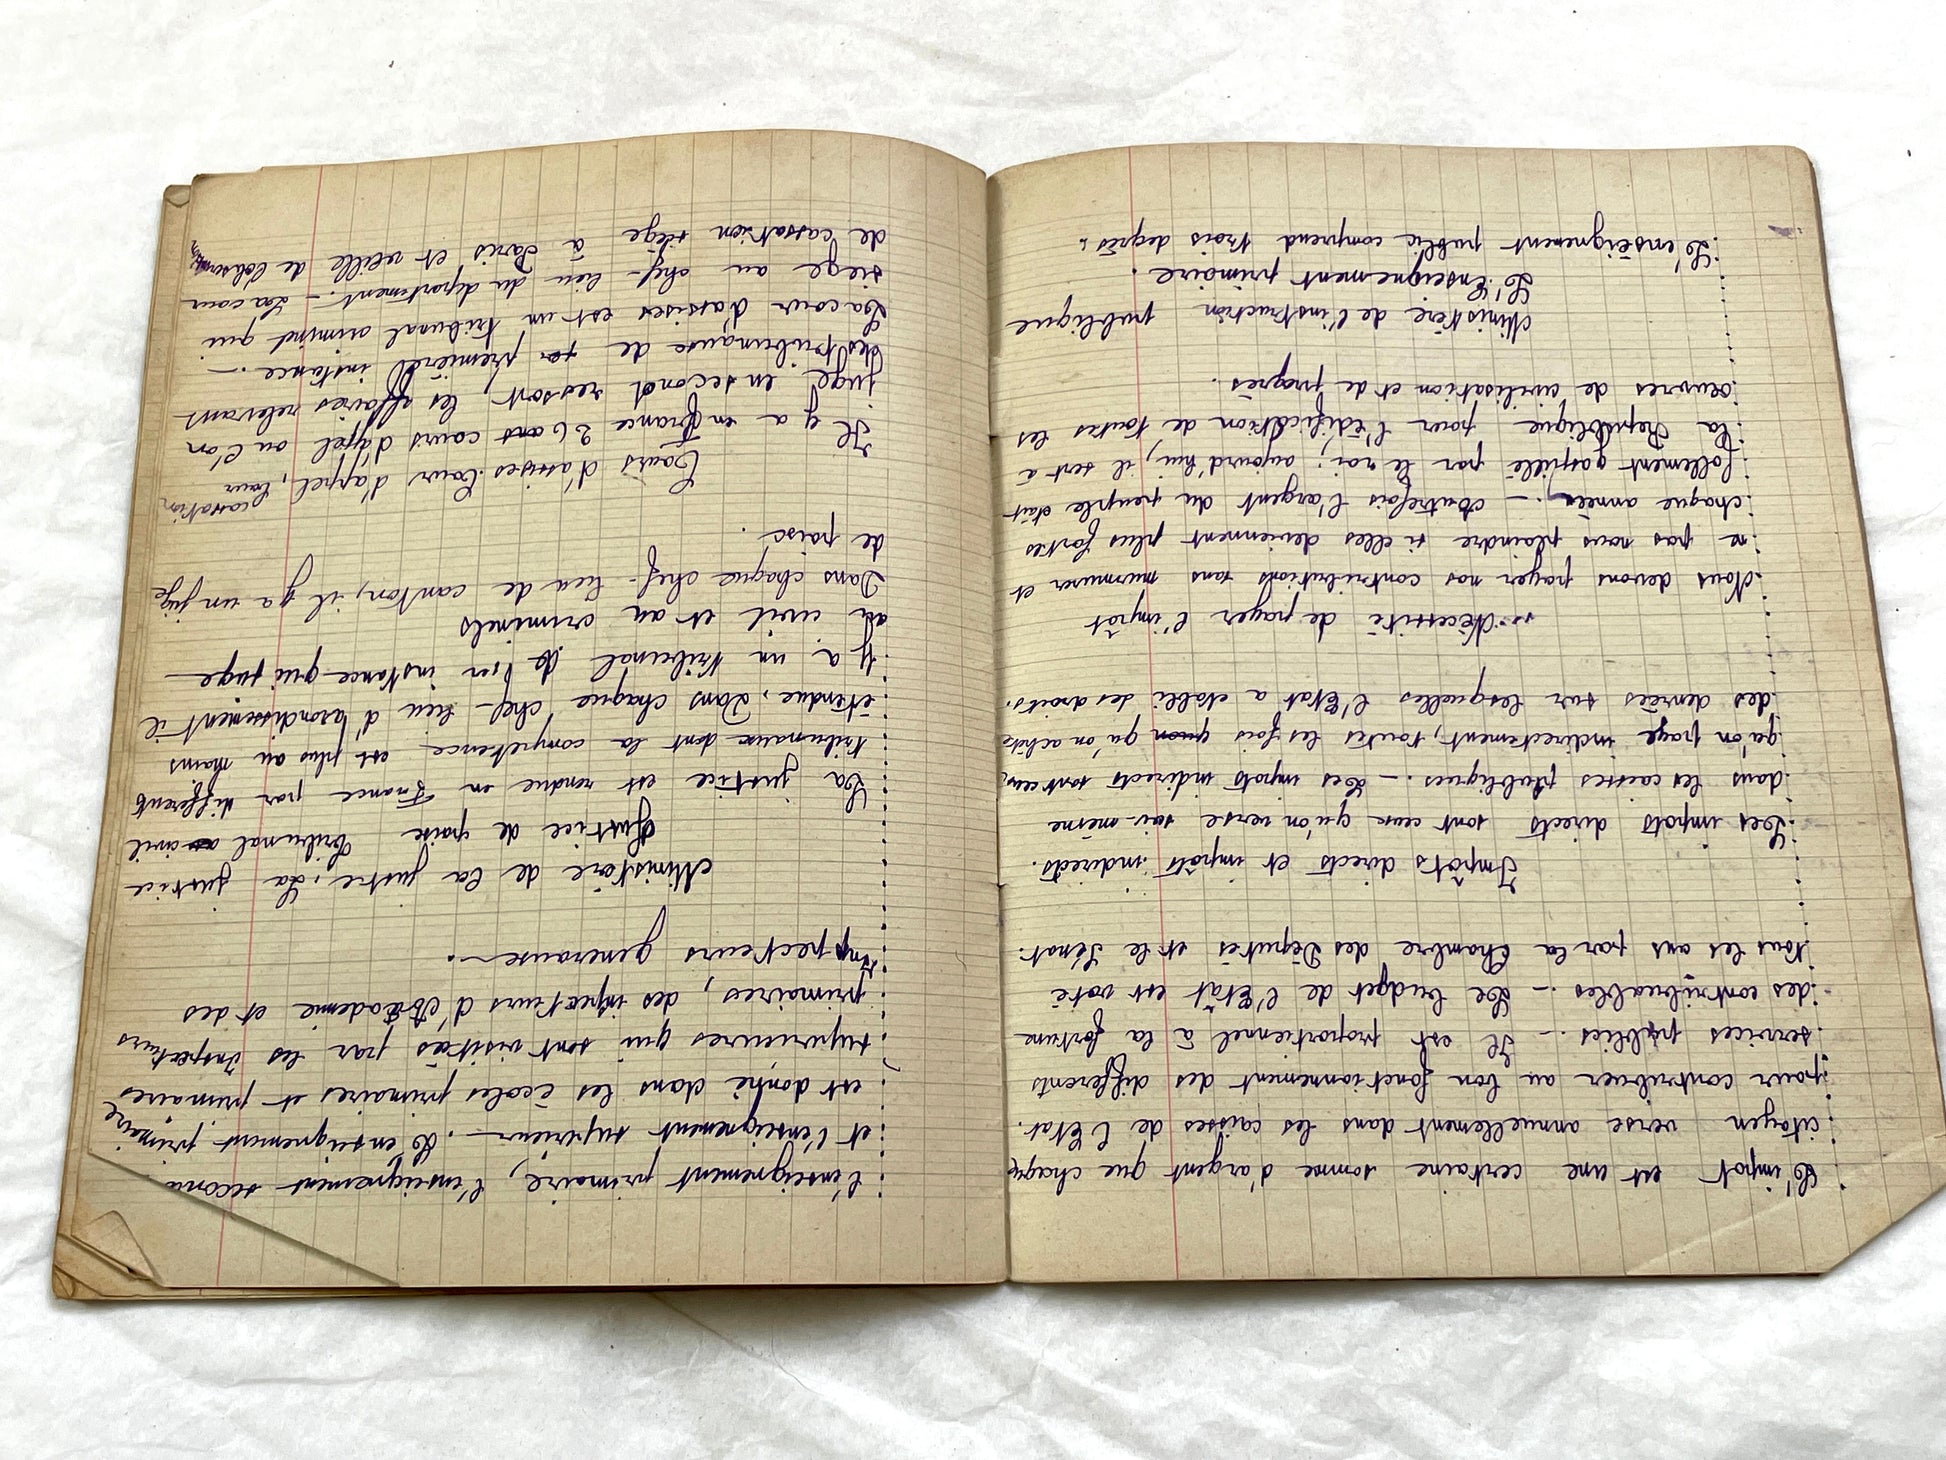 L'impot est une certaine somme d'argent que chaque
citoyen verse annuellement dans les caisses de l'Etat.
pour contribuer au bon fonctionnement des differents
services publics. - Il est proportionnel à la fortune
des contribuables. - Le budget de l'Etat est voté
tous les ans par la Chambre des Députés et le Sénat.
Impôts directs et impôts indirects.
Les impots directs sont ceux qu'on verse soi-même
dans les caisses publiques. - Les impots indirects sont ceux
qu'on paye indirectement, toutes les fois qu'on achète
des denrées sur lesquelles l'Etat a etabli des droits.
Nécessité de payer l'impôt
Nous devons payer nos contributions sans murmurer et
ne pas nous plaindre si elles deviennent plus fortes
chaque année. - Autrefois l'argent du peuple etait
follement gaspillé par le roi; aujourd'hui, il sert à
la République pour l'édification de toutes les
œuvres de civilisation et de progrès.
Ministère de l'instruction publique
L'Enseignement primaire.
L'enseignement public comprend trois degrés:
l'enseignement primaire, l'enseignement second
et l'enseignement supérieur. L'enseignement primaire
est donné dans les écoles primaires et primaires
superieures qui sont visitées par les Inspecteurs
primaires, des inspecteurs d'Academie et des
Inspecteurs generaux.
Ministère de la justice. La justice
Justice de paix Tribunal civil
La justice est rendue en France par differents
tribunaux dont la compétence est plus au moins
étendue. Dans chaque chef-lieu d'arondissement il
y a un tribunal de 1er instance qui juge
au civil et au criminels
Dans chaque chef-lieu de canton, il y a un juge
de paix.
Cours d'assises. Cour d'appel, Cour cassation
Il y a en France 26 cours d'appel ou l'on
juge en second ressort, les affaires relevant
des tribunaux de première instance. -
La cour d'assises est un tribunal criminel qui
siege au chef-lieu du département. - La cour
de cassation siège à Paris et veille de l'observation